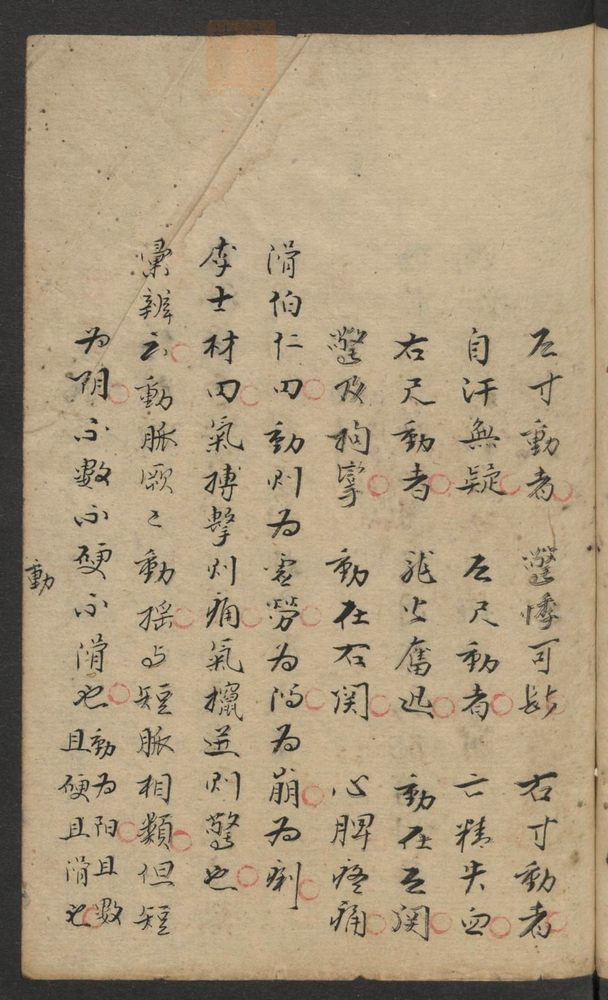 左寸動者　驚悸可斷　右寸動者
自汗無疑　左尺動者　亡精失血
右尺動者　龍火奮迅　動在左関
驚及拘攣　動在右関　心脾疼痛
滑伯仁曰動則为虛勞为瀉为崩为痢
李士材曰氣搏擊則痛氣攛迸則驚也
彙辨云動脈厥々動搖与短脈相類但短
为阴不數不硬不滑也動为阳且數
且硬且滑也
動